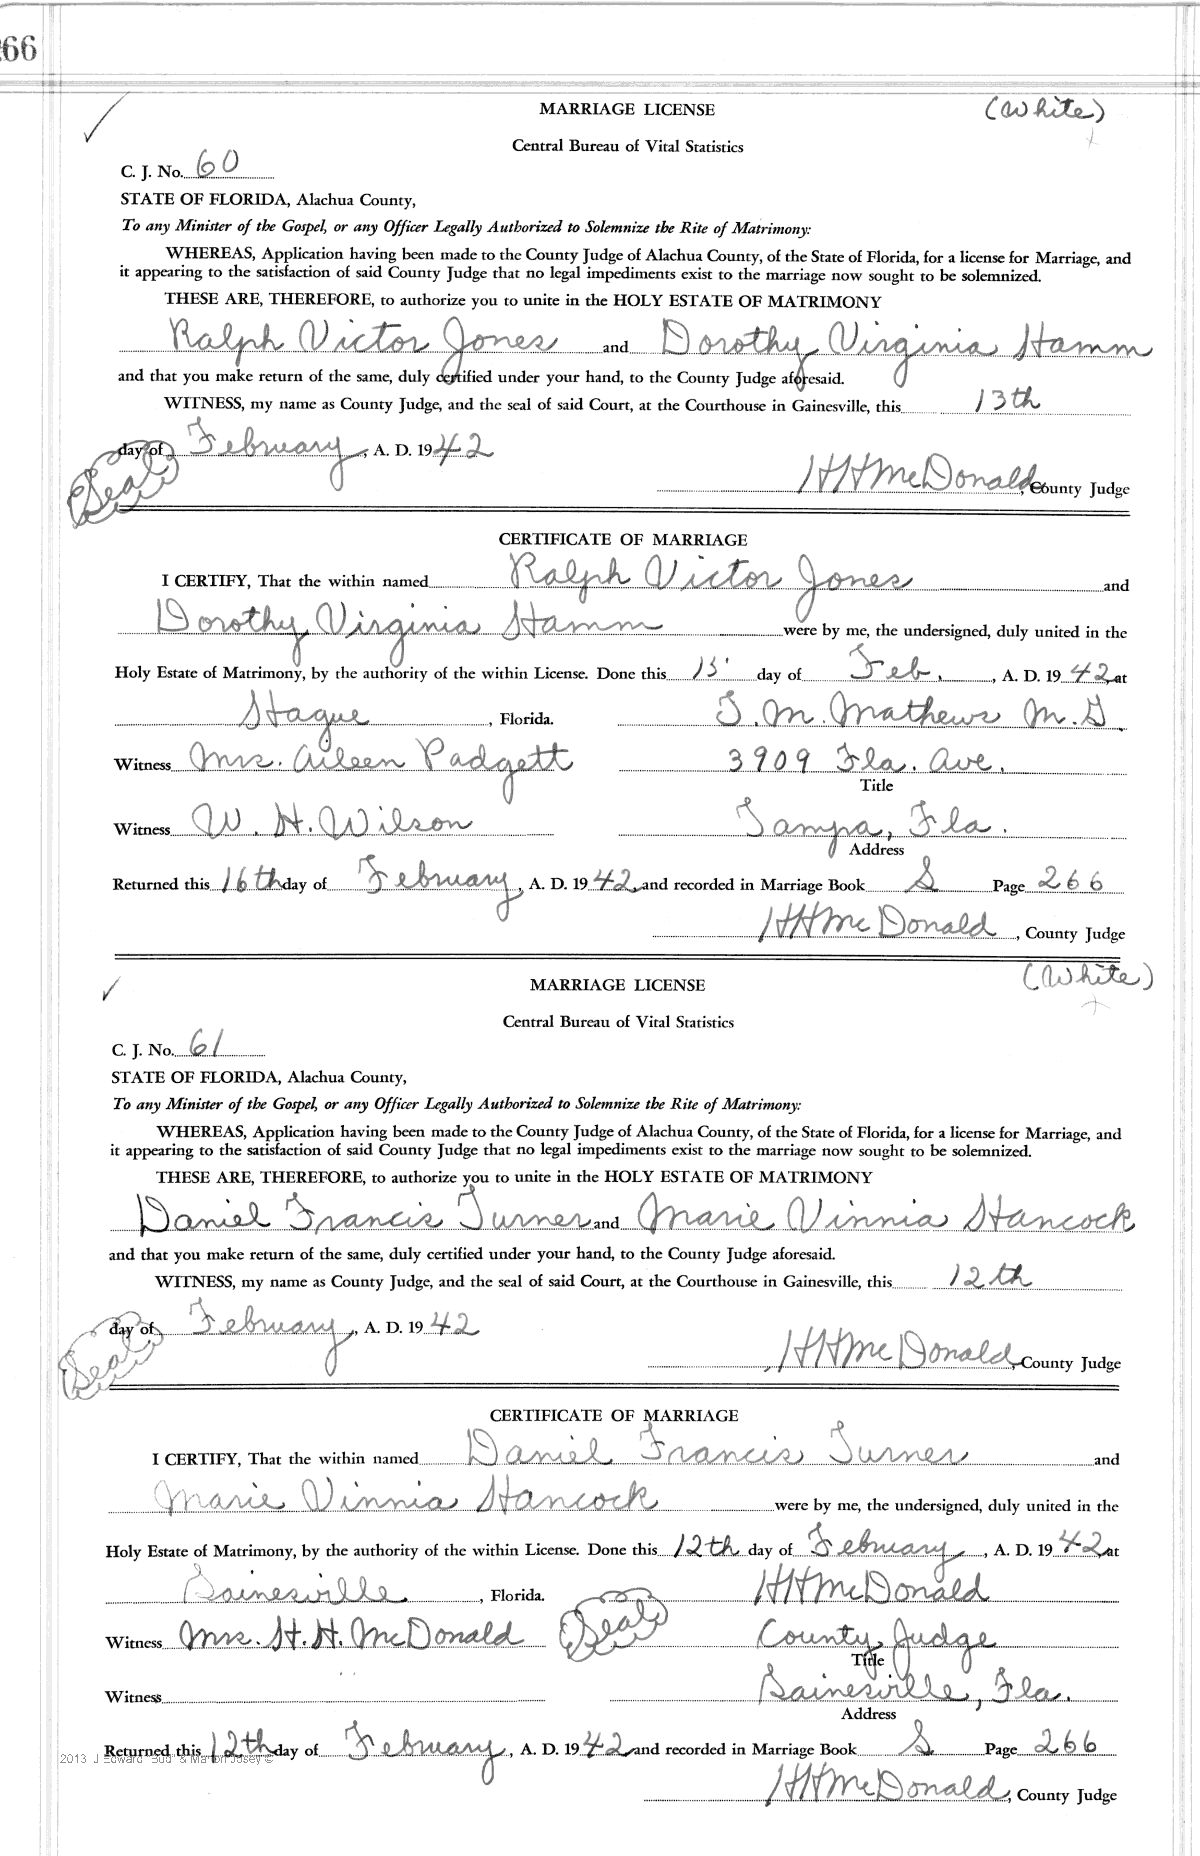 266
MARRIAGE LICENSE (White)
Central Bureau of Vital Statistics
C. J. No. 60
STATE OF FLORIDA, Alachua County,
To any Minister of the Gospel, or any Officer Legally Authorized to Solemnize the Rite of Matrimony:
WHEREAS, Application having been made to the County Judge of Alachua County, of the State of Florida, for a license for Marriage, and
it appearing to the satisfaction of said County Judge that no legal impediments exist to the marriage now sought to be solemnized.
THESE ARE, THEREFORE, to authorize you to unite in the HOLY ESTATE OF MATRIMONY
Ralph Victor Jones and Dorothy Virginia Hamm
and that you make return of the same, duly certified under your hand, to the County Judge aforesaid.
WITNESS, my name as County Judge, and the seal of said Court, at the Courthouse in Gainesville, this 13th
day of February, A. D. 1942
(Seal) HHMcDonald, County Judge
CERTIFICATE OF MARRIAGE
I CERTIFY, That the within named Ralph Victor Jones and
Dorothy Virginia Hamm were by me, the undersigned, duly united in the
Holy Estate of Matrimony, by the authority of the within License. Done this 15 day of Feb., A. D. 1942 at
Hague, Florida. T. M. Mathews M. G.
Witness Mrs. Aileen Padgett 3909 Fla. Ave.
Title
Witness W. H. Wilson Tampa, Fla.
Address
Returned this 16th day of February, A. D. 1942, and recorded in Marriage Book S Page 266
HHMcDonald, County Judge
MARRIAGE LICENSE (White)
Central Bureau of Vital Statistics
C. J. No. 61
STATE OF FLORIDA, Alachua County,
To any Minister of the Gospel, or any Officer Legally Authorized to Solemnize the Rite of Matrimony:
WHEREAS, Application having been made to the County Judge of Alachua County, of the State of Florida, for a license for Marriage, and
it appearing to the satisfaction of said County Judge that no legal impediments exist to the marriage now sought to be solemnized.
THESE ARE, THEREFORE, to authorize you to unite in the HOLY ESTATE OF MATRIMONY
Daniel Francis Turner and Marie Vinnia Hancock
and that you make return of the same, duly certified under your hand, to the County Judge aforesaid.
WITNESS, my name as County Judge, and the seal of said Court, at the Courthouse in Gainesville, this 12th
day of February, A. D. 1942
(Seal) HHMcDonald, County Judge
CERTIFICATE OF MARRIAGE
I CERTIFY, That the within named Daniel Francis Turner and
Marie Vinnia Hancock were by me, the undersigned, duly united in the
Holy Estate of Matrimony, by the authority of the within License. Done this 12th day of February, A. D. 1942 at
Gainesville, Florida. HHMcDonald
Witness Mrs. H. H. McDonald (Seal) County Judge
Title
Witness Gainesville, Fla.
Address
Returned this 12th day of February, A. D. 1942 and recorded in Marriage Book S Page 266
2013 J Edward "Bud" & Marion Josey ©
HHMcDonald, County Judge